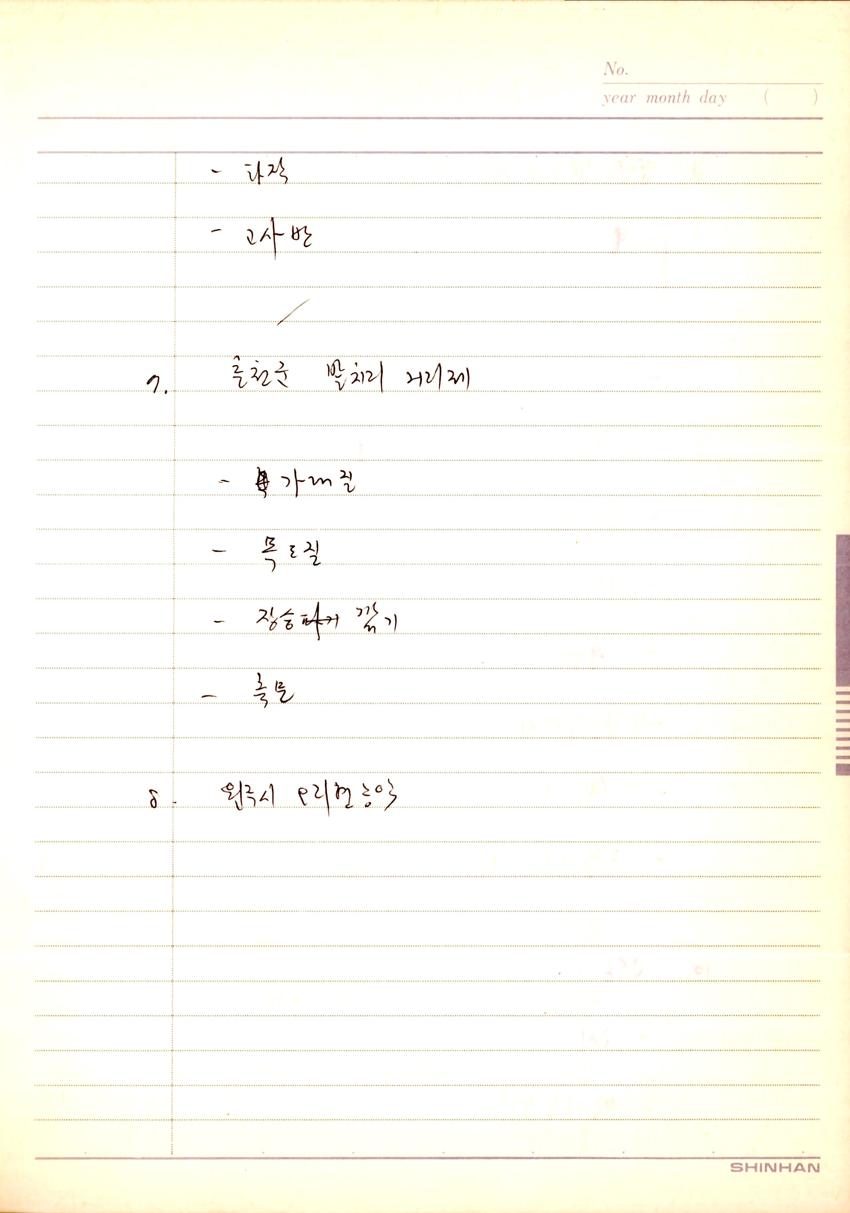 No.
year month day ( )
- 타작
- 고사반
7. 홍천군 발치리 거리제
- 가래질
- 목도질
- 장승 깎기
- 축문
8. 원주시 호리면 농악
SHINHAN